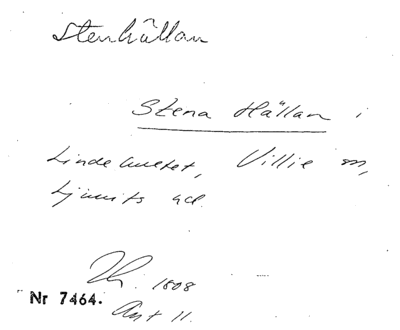 Stenhällan
Stena Hällan i
Lindehultet, Villie sn,
Ljunits hd.
Th. 1808
Nr 7464.
Ant 11.